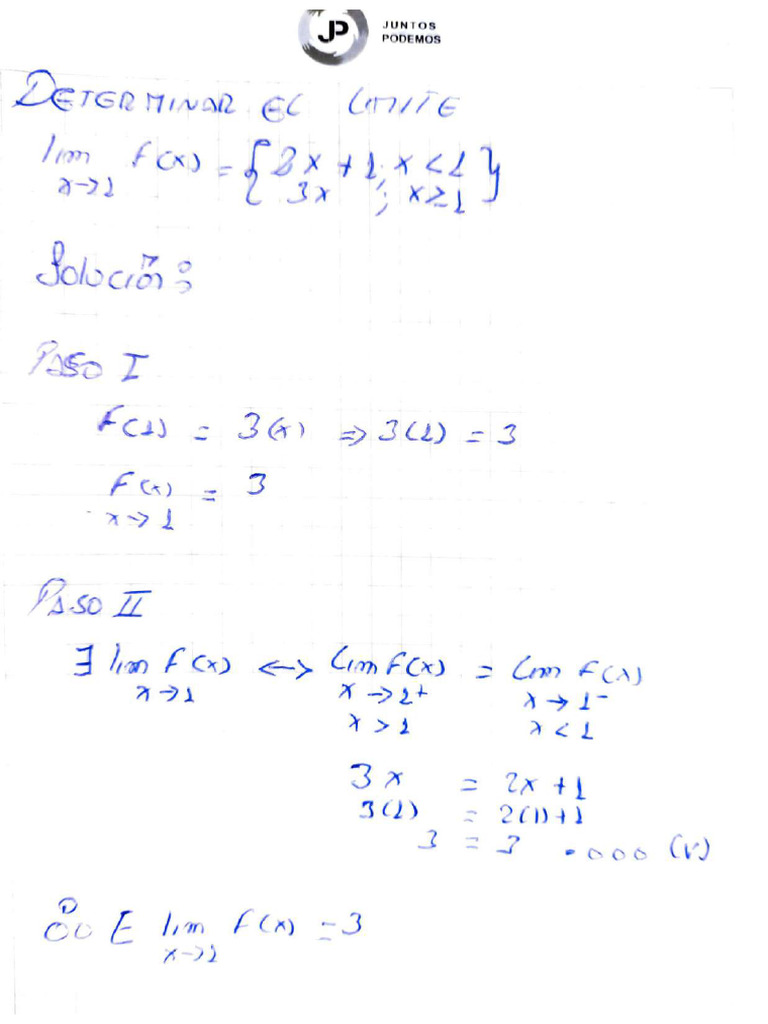 JP JUNTOS
PODEMOS
DETERMINAR EL LIMITE
lim f(x) = { 2x + 1 ; x < 1 }
x→1 3x ; x ≥ 1
Solución:
PASO I
F(1) = 3(x) ⇒ 3(1) = 3
F(x) = 3
x→1
PASO II
∃ lim F(x) ↔ Lim F(x) = Lim F(x)
x→1 x→1+ x→1-
x > 1 x < 1
3x = 2x + 1
3(1) = 2(1)+1
3 = 3 .ooo (V)
∴ E lim F(x) = 3
x→1